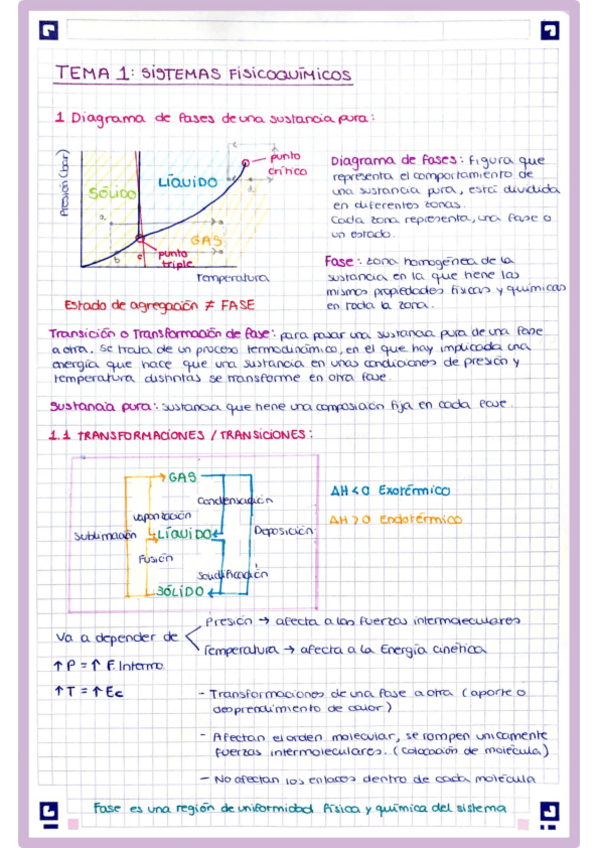 TEMA 1: SISTEMAS FISICOQUÍMICOS
1 Diagrama de fases de una sustancia pura:
Presión (bar)
SÓLIDO
LÍQUIDO
GAS
punto crítico
punto triple
a
b
c
d
Temperatura
Estado de agregación ≠ FASE
Diagrama de fases: Figura que
representa el comportamiento de
una sustancia pura, está dividida
en diferentes zonas.
Cada zona representa, una fase o
un estado.
Fase: zona homogénea de la
sustancia en la que tiene las
mismas propiedades físicas y químicas
en toda la zona.
Transición o Transformación de fase: para pasar una sustancia pura de una fase
a otra. Se trata de un proceso termodinámico, en el que hay implicada una
energía que hace que una sustancia en unas condiciones de presión y
temperatura distintas se transforme en otra fase.
Sustancia pura: sustancia que tiene una composición fija en cada fase.
1.1 TRANSFORMACIONES / TRANSICIONES:
GAS
Condensación
vaporización
Sublimación
LÍQUIDO
Deposición
Fusión
Solidificación
SÓLIDO
ΔH < 0 Exotérmico
ΔH > 0 Endotérmico
Va a depender de
Presión → afecta a las fuerzas intermoleculares
Temperatura → afecta a la Energía cinética
↑ P = ↑ F. Intermo.
↑ T = ↑ Ec
- Transformaciones de una fase a otra (aporte o
desprendimiento de calor)
- Afectan el orden molecular, se rompen unicamente
fuerzas intermoleculares. (colocación de molécula)
- No afectan los enlaces dentro de cada molécula
Fase es una región de uniformidad física y química del sistema